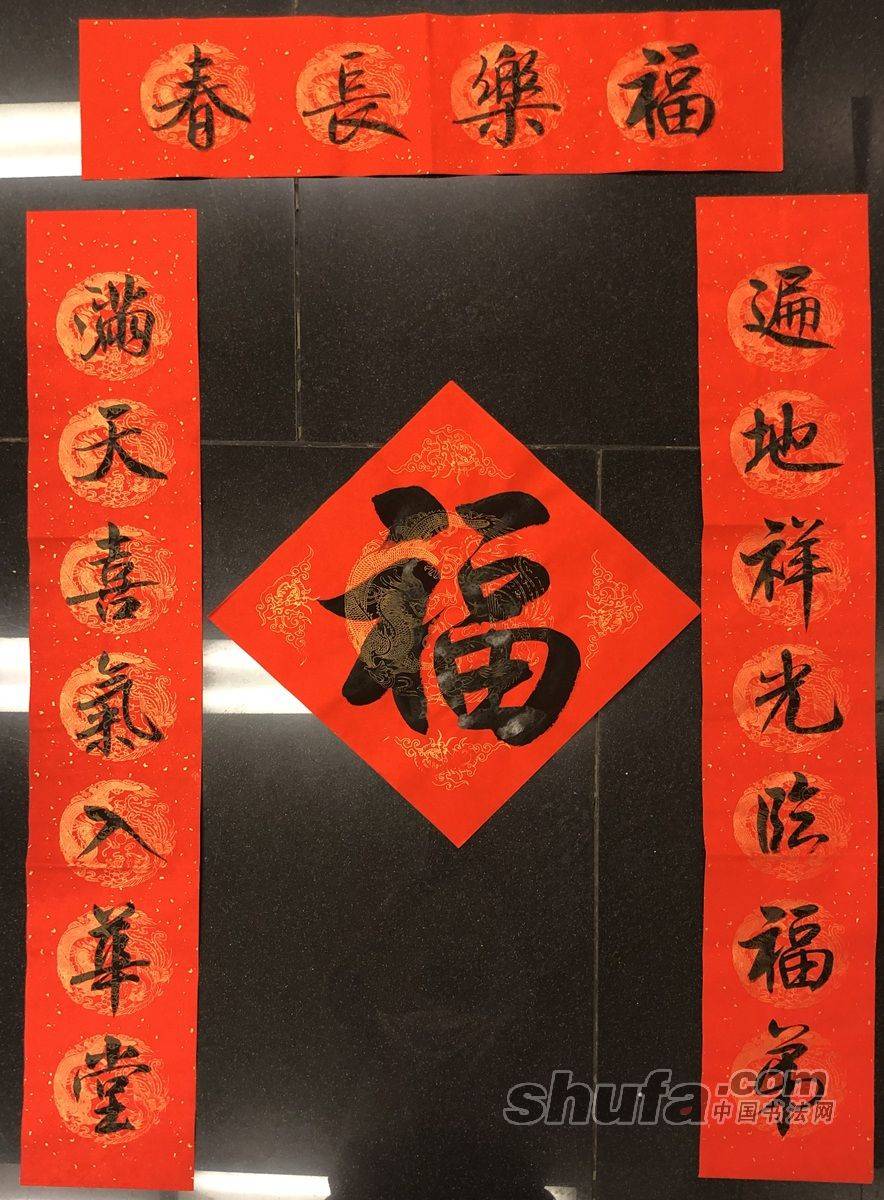 福樂長春
遍地祥光临福第
滿天喜氣入華堂
福
shufa.com
中国书法网